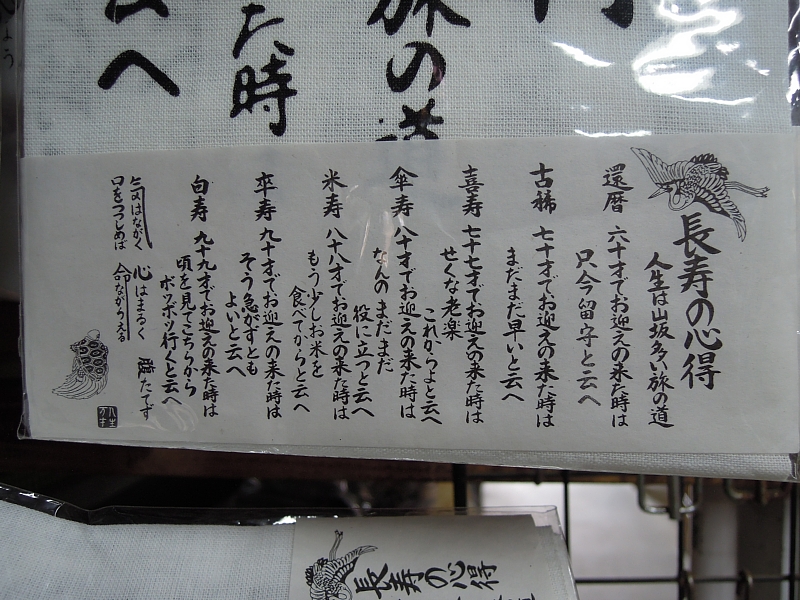 た時
旅の道
長寿の心得
人生は山坂多い旅の道
還暦 六十才でお迎えの来た時は
只今留守と云へ
古稀 七十才でお迎えの来た時は
まだまだ早いと云へ
喜寿 七十七才でお迎えの来た時は
せくな老楽
これからよと云へ
傘寿 八十才でお迎えの来た時は
なんのまだまだ
役に立つと云へ
米寿 八十八才でお迎えの来た時は
もう少しお米を
食べてからと云へ
卒寿 九十才でお迎えの来た時は
そう急がずとも
よいと云へ
白寿 九十九才でお迎えの来た時は
頃を見てこちらから
ボツボツ行くと云へ
気はながく 心はまるく 腹たてず
口をつつしめば 命ながらえる
長寿の心得